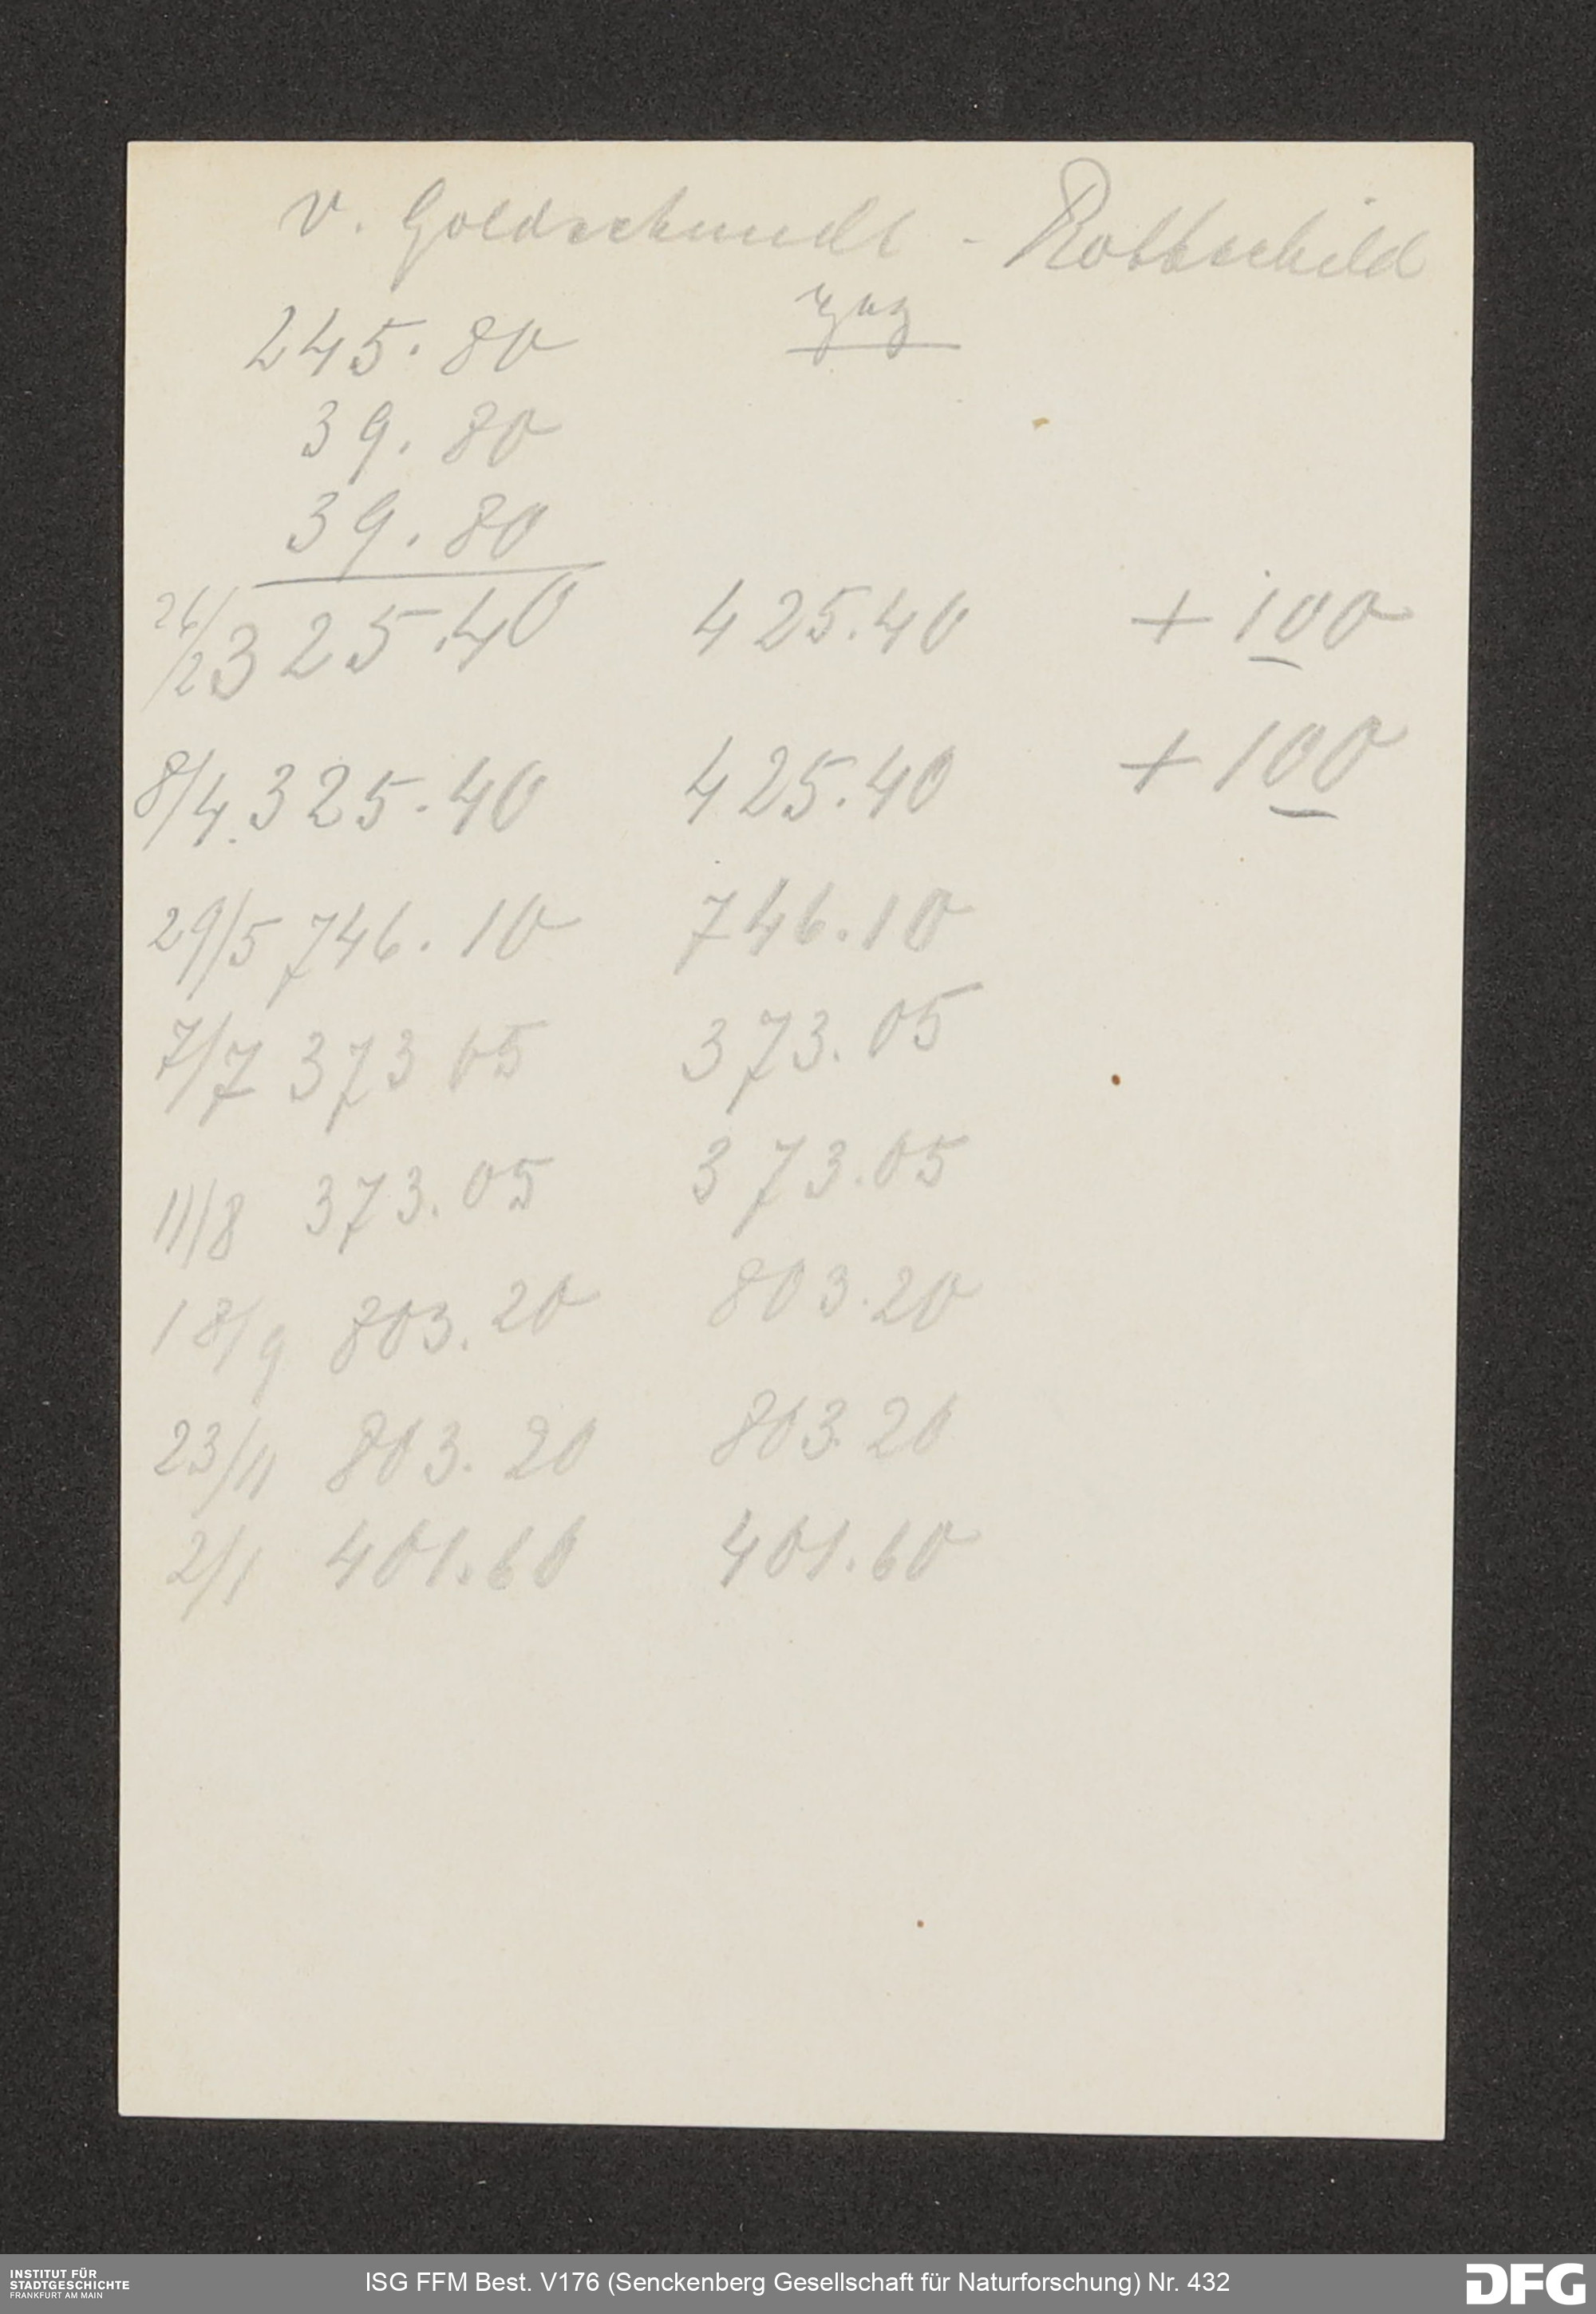 v. Goldschmidt - Rothschild
245.80
39.80
39.80
26/2 325.40 425.40 + 100
8/4. 325.40 425.40 + 100
29/5 746.10 746.10
7/7 373 05 373.05
11/8 373.05 373.05
18/9 803.20 803.20
23/11 803.20 803.20
2/1 401.60 401.60
INSTITUT FÜR
STADTGESCHICHTE
FRANKFURT AM MAIN
ISG FFM Best. V176 (Senckenberg Gesellschaft für Naturforschung) Nr. 432
DFG